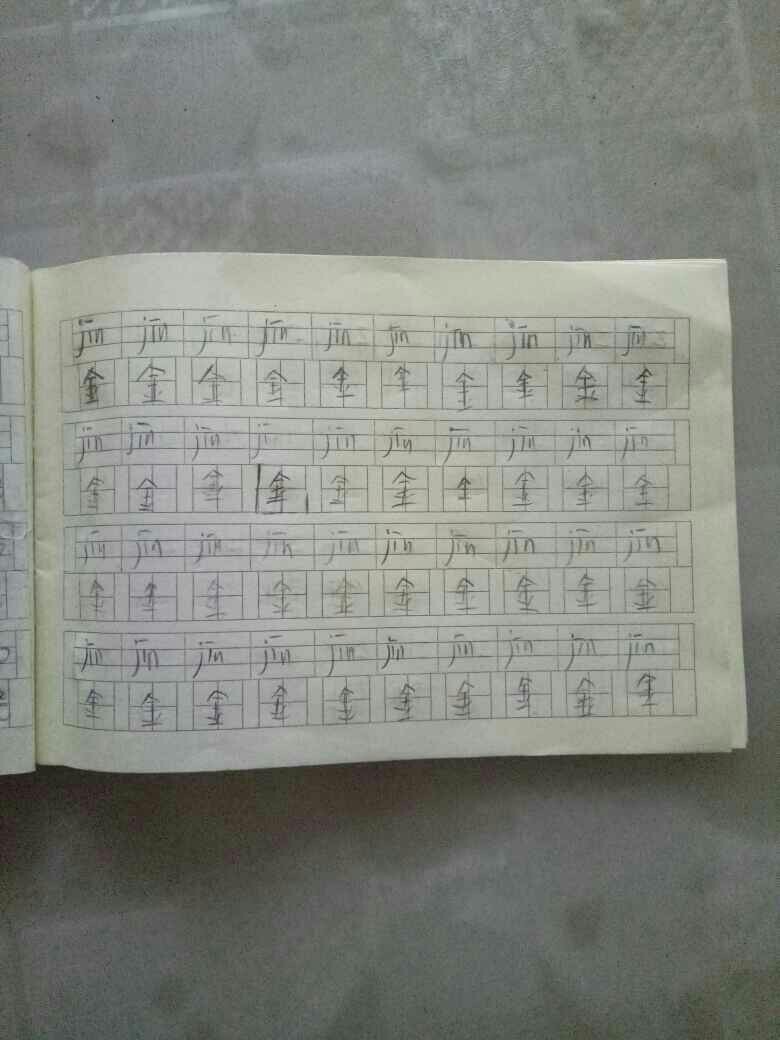 jīn jīn jīn jīn jīn jīn jīn jīn jīn jīn
金 金 金 金 金 金 金 金 金 金
jīn jīn jīn jī jīn jīn jīn jīn jīn jīn
金 金 金 金 金 金 金 金 金 金
jīn jīn jīn jīn jīn jīn jīn jīn jīn jīn
金 金 金 金 金 金 金 金 金 金
jīn jīn jīn jīn jīn jīn jīn jīn jīn jīn
金 金 金 金 金 金 金 金 金 金